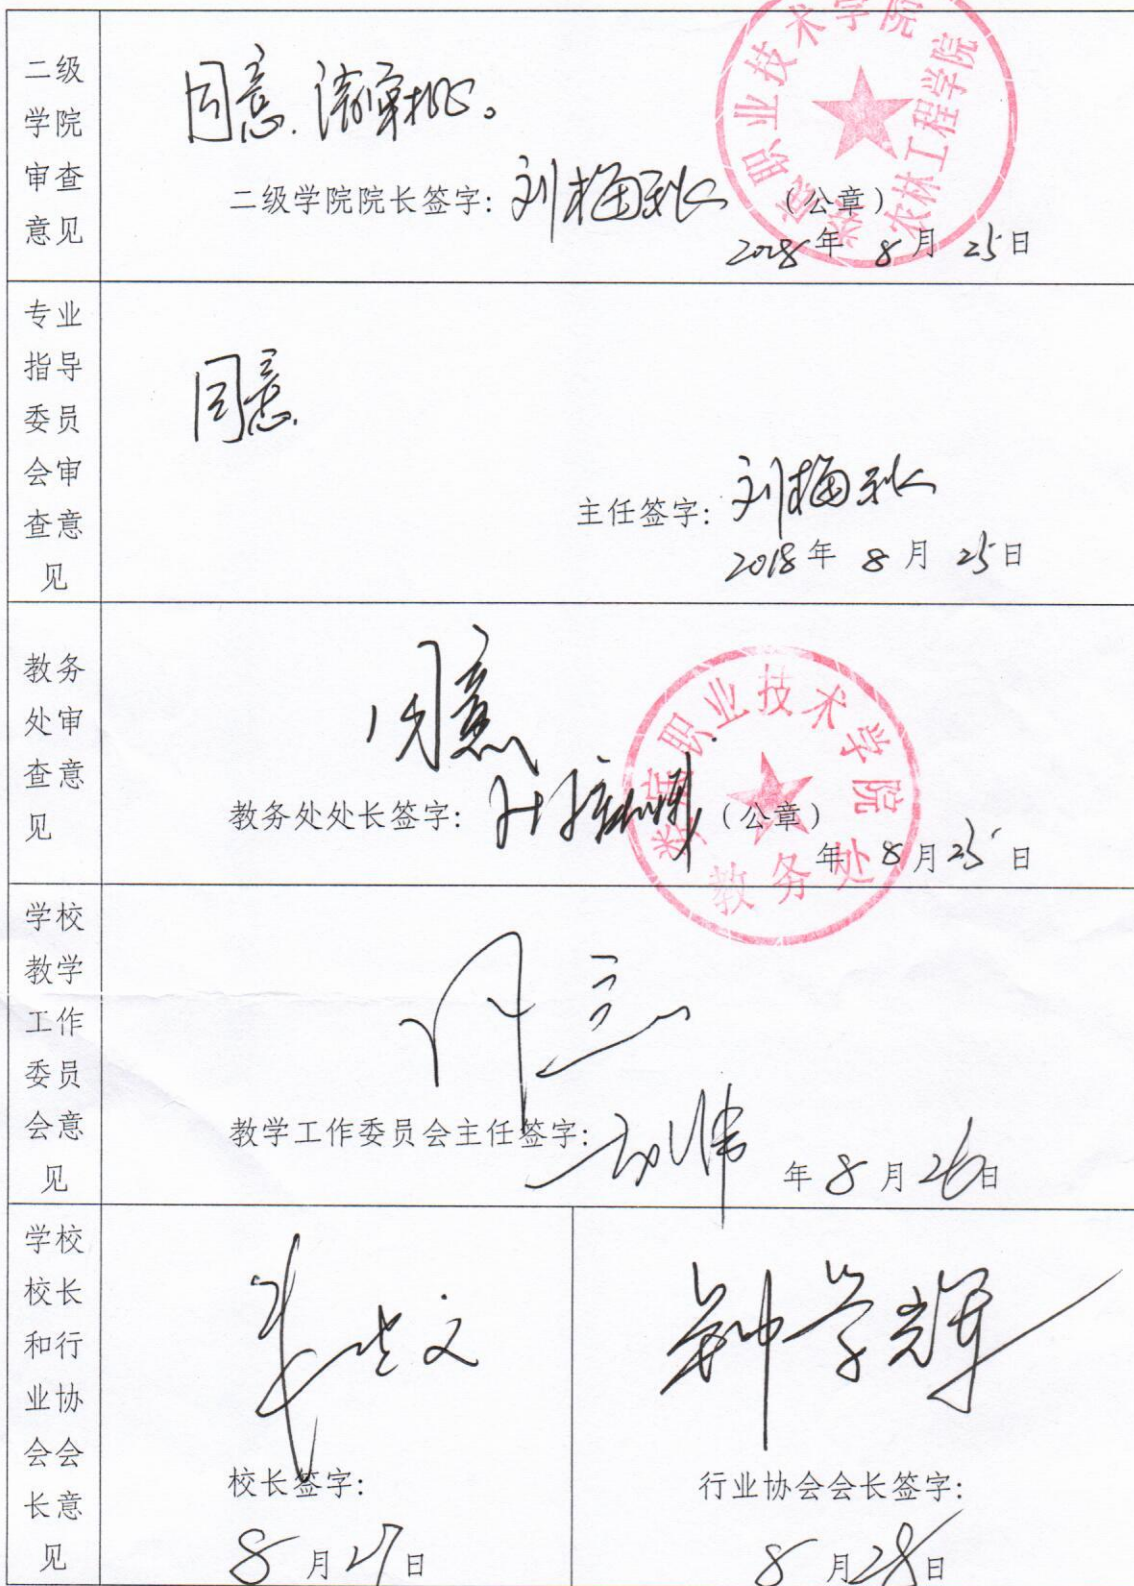 二级
学院
审查
意见
同意.请审批。
二级学院院长签字:刘梅秋 (公章)
2018年 8月 25日
职业技术学院
农林工程学院
专业
指导
委员
会审
查意
见
同意.
主任签字:刘梅秋
2018年 8月 25日
教务
处审
查意
见
同意
教务处处长签字: (公章)
年 8月25日
娄底职业技术学院
教务处
学校
教学
工作
委员
会意
见
同意
教学工作委员会主任签字:
年 8月26日
学校
校长
和行
业协
会会
长意
见
校长签字:
8月27日
钟学辉
行业协会会长签字:
8月28日